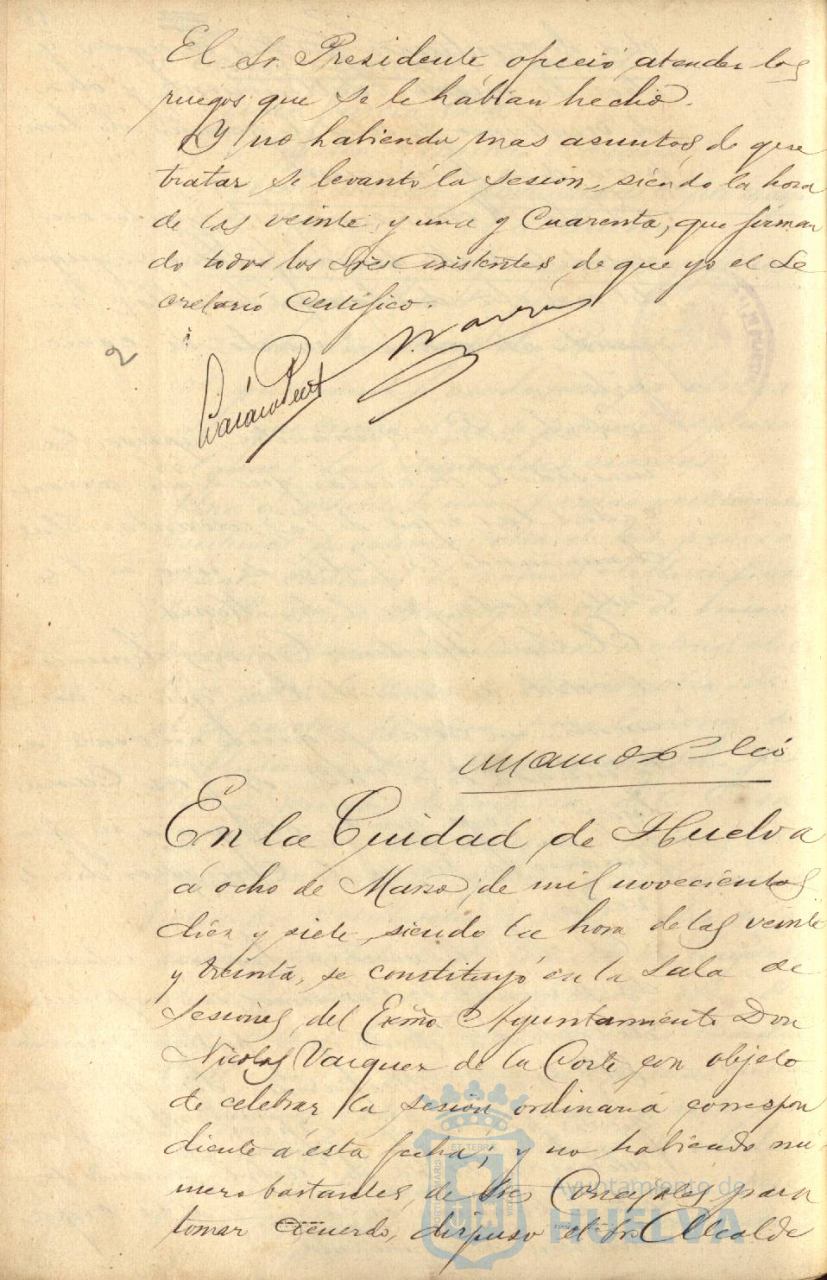 El Sr. Presidente ofreció atender los
ruegos que se le habían hecho.
Y no habiendo mas asuntos, de que
tratar se levantó la sesion, siendo la hora
de las veinte y una y Cuarenta, que firman
do todos los Sres Asistentes, de que yo el Se
cretario Certifico.
2
En la Cuidad de Huelva
á ocho de Marzo, de mil novecientos
diez y siete, siendo la hora de las veinte
y treinta, se constituyó en la Sala de
Sesiones, del Exmo Ayuntamiento Don
Nicolas Vazquez de la Corte, con objeto
de celebrar la sesion ordinaria correspon
diente á esta fecha, y no habiendo nú
mero bastantes, de Sres Concejales para
tomar acuerdo, dispuso el Sr. Alcalde
Ayuntamiento de
HUELVA